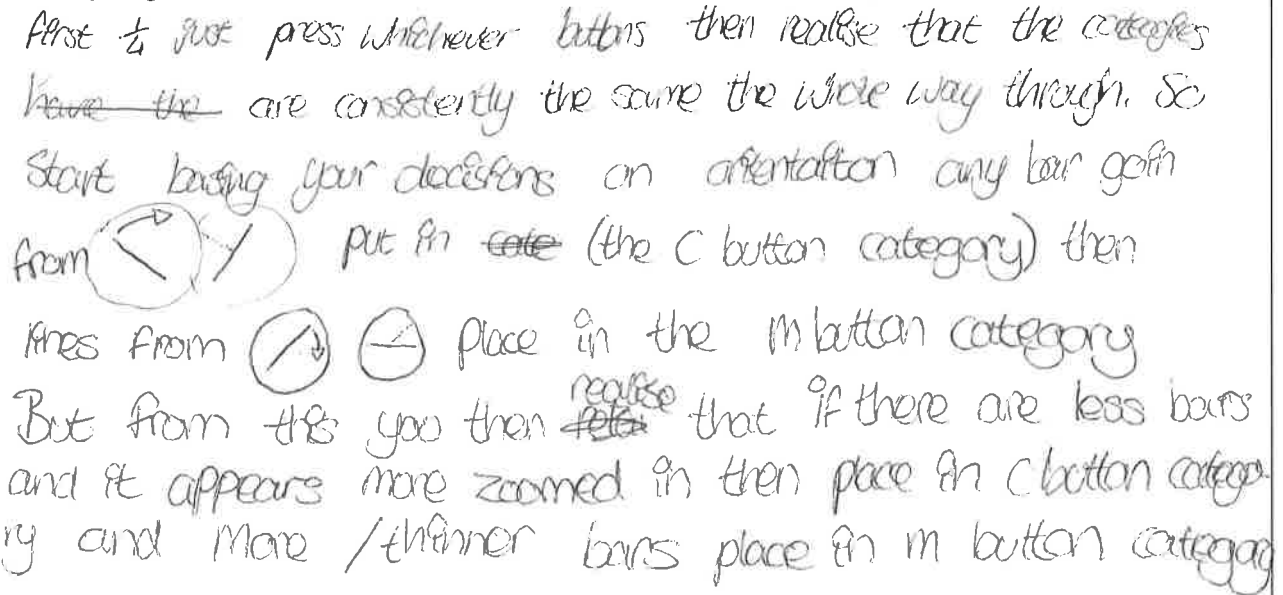 first ¼ just press whichever buttons then realise that the categories
have the are consistently the same the whole way through. So
Start basing your decisions on orientation any bar goin
from put in cate (the C button category) then
lines from place in the m button category
realise
But from this you then that if there are less bars
and it appears more zoomed in then place in C button catego-
ry and more / thinner bars place in m button category